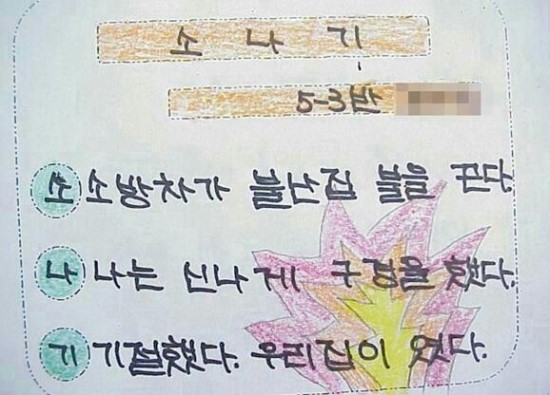 소 나 기
5-3반
소 소방차가 불난집 불을 끈다.
나 나는 신나게 구경을 했다.
기 기절했다. 우리집이 였다.